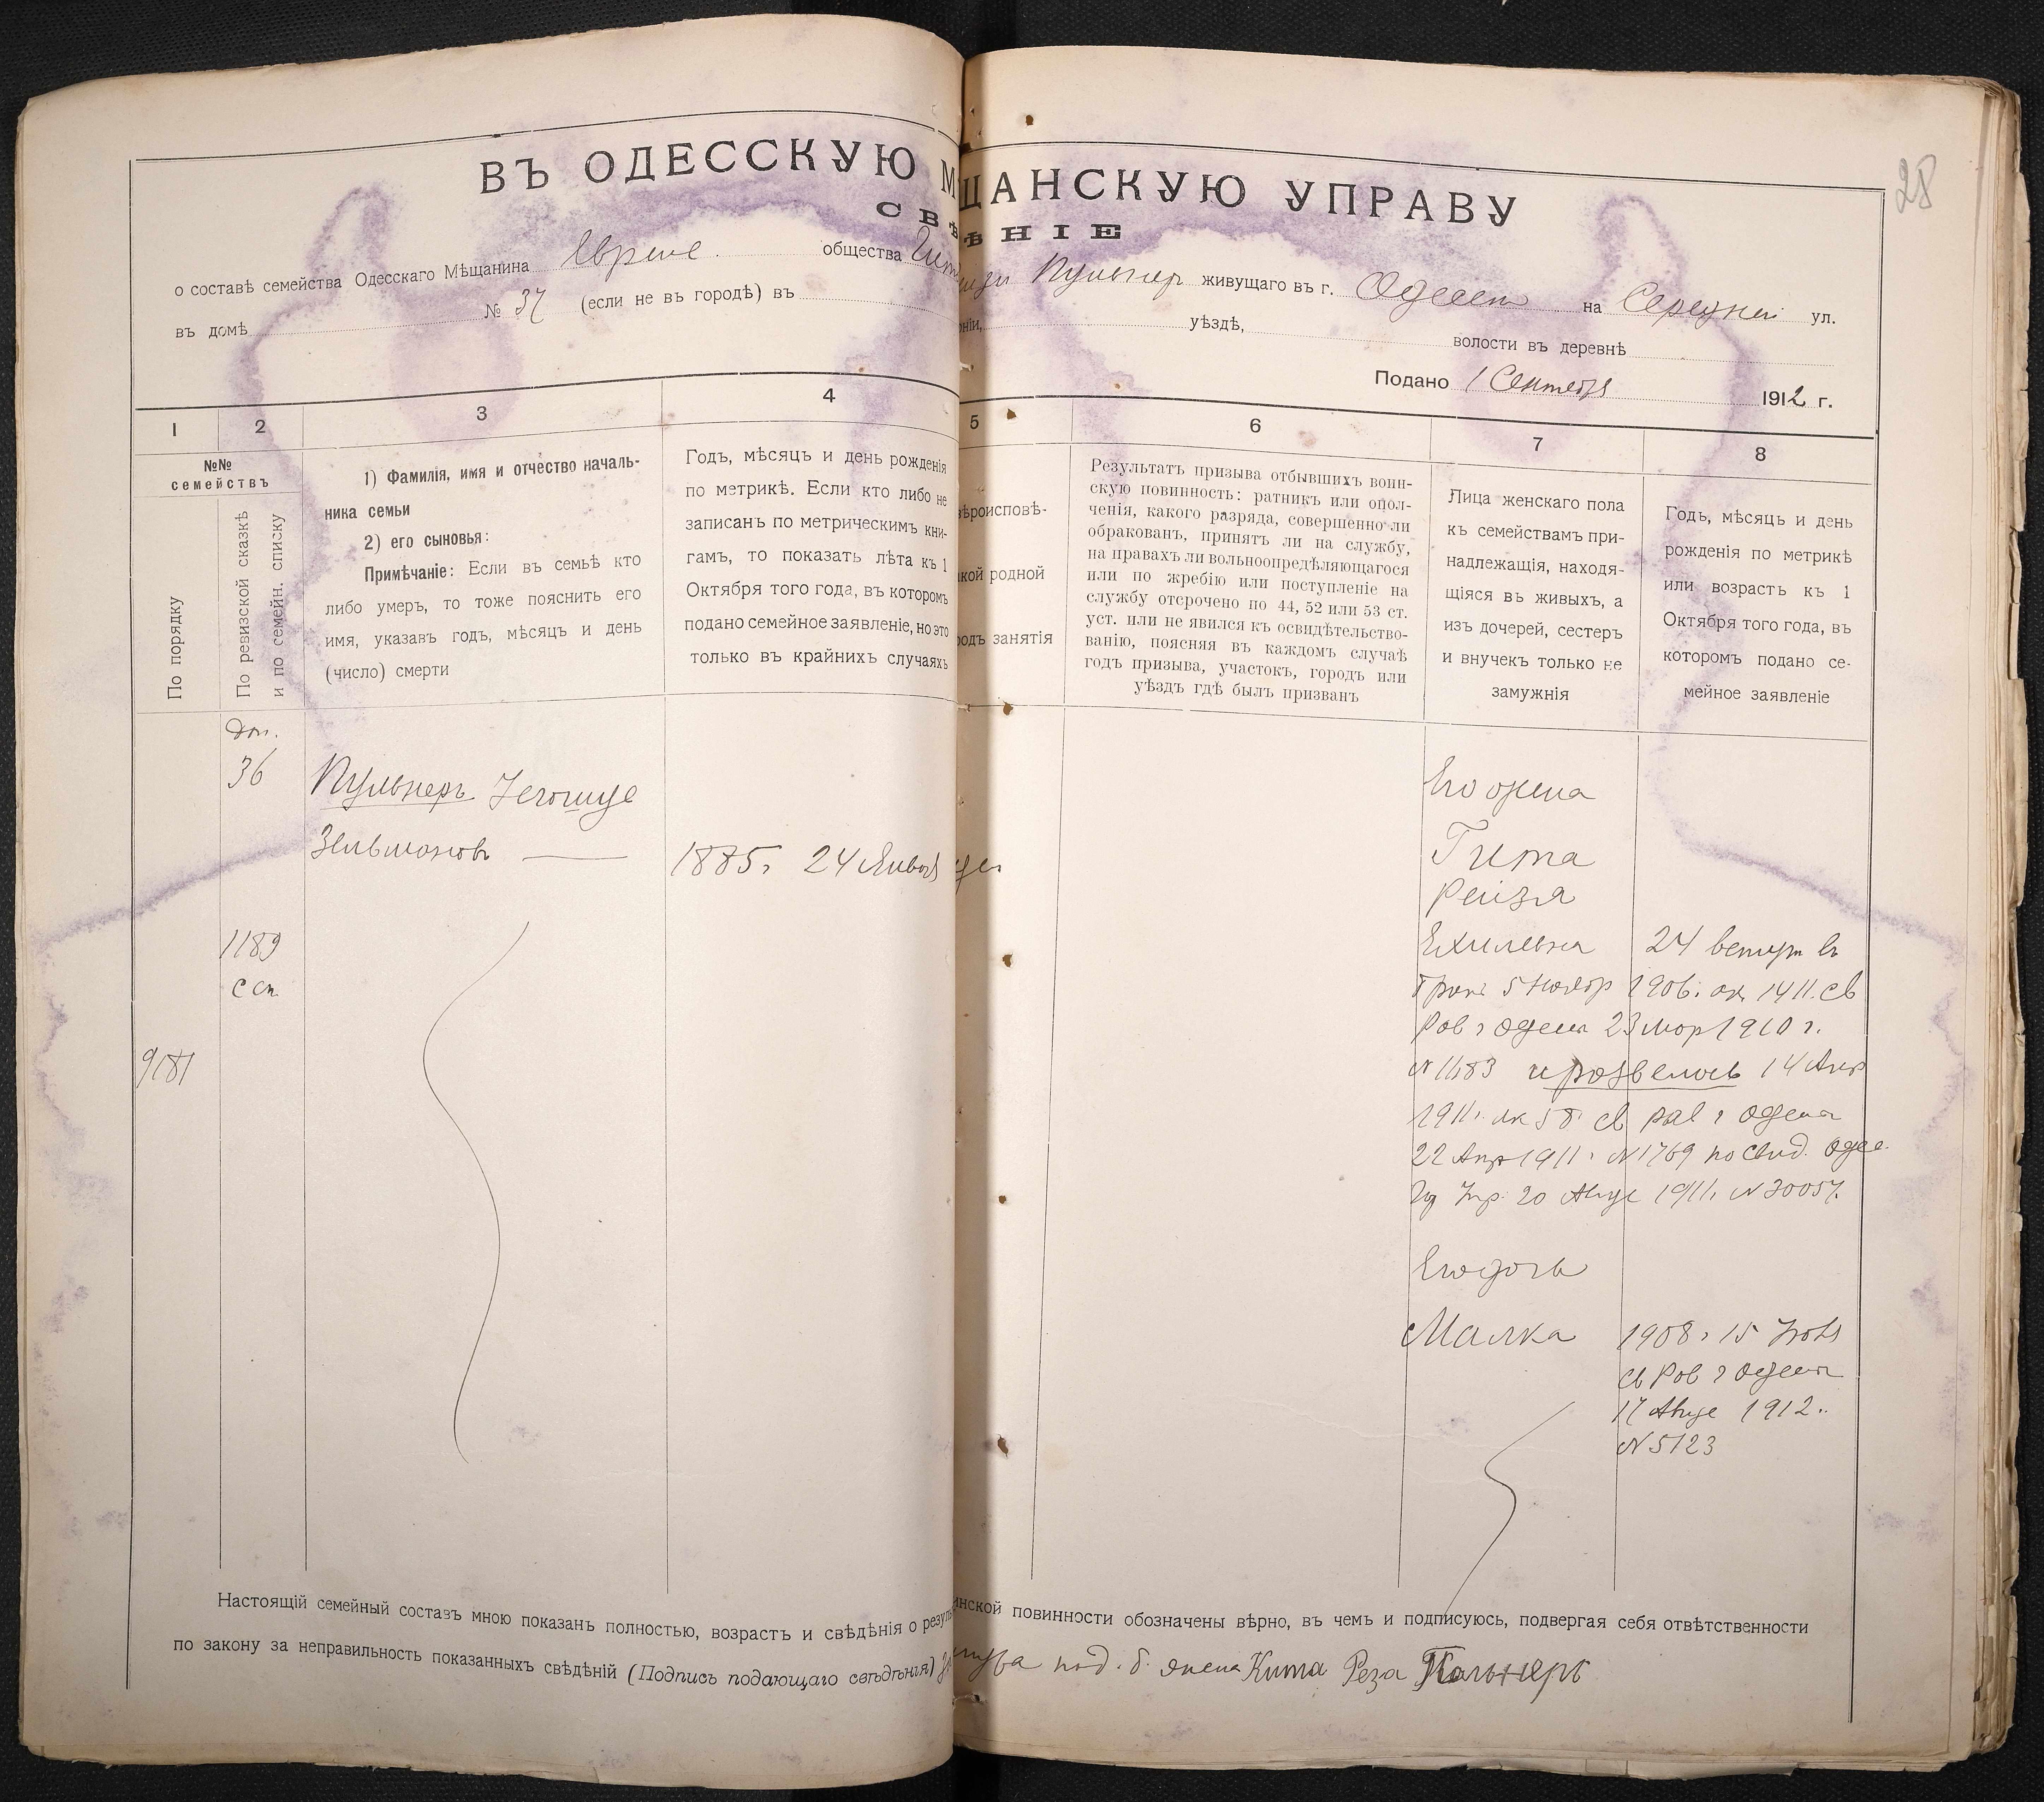 28
ВЪ ОДЕССКУЮ М ЩАНСКУЮ УПРАВУ
СВѢ ѢНІЕ
о составѣ семейства Одесскаго Мѣщанина Еврейс. общества Пульнер живущаго въ г. Одессе на Середней ул.
въ домѣ № 37 (если не въ городѣ) въ рніи, уѣздѣ, волости въ деревнѣ
Подано 1 Сентябр 1912 г.
1 2 3 4 5 6 7 8
№№
семействъ
По порядку
По ревизской сказкѣ
и по семейн. списку
1) Фамилія, имя и отчество началь-
ника семьи
2) его сыновья:
Примѣчаніе: Если въ семьѣ кто
либо умеръ, то тоже пояснить его
имя, указавъ годъ, мѣсяцъ и день
(число) смерти
Годъ, мѣсяцъ и день рожденія
по метрикѣ. Если кто либо не
записанъ по метрическимъ кни-
гамъ, то показать лѣта къ 1
Октября того года, въ которомъ
подано семейное заявленіе, но это
только въ крайнихъ случаяхъ
вѣроисповѣ-
акой родной
родъ занятія
Результатъ призыва отбывшихъ воин-
скую повинность: ратникъ или опол-
ченія, какого разряда, совершенно ли
обракованъ, принятъ ли на службу,
на правахъ ли вольноопредѣляющагося
или по жребію или поступленіе на
службу отсрочено по 44, 52 или 53 ст.
уст. или не явился къ освидѣтельство-
ванію, поясняя въ каждомъ случаѣ
годъ призыва, участокъ, городъ или
уѣздъ гдѣ былъ призванъ
Лица женскаго пола
къ семействамъ при-
надлежащія, находя-
щіяся въ живыхъ, а
изъ дочерей, сестеръ
и внучекъ только не
замужнія
Годъ, мѣсяцъ и день
рожденія по метрикѣ
или возрастъ къ 1
Октября того года, въ
которомъ подано се-
мейное заявленіе
Доп.
36
Пульнеръ
Зельмановъ
1885г 24 Январ
1189
с сп
9181
Его жена
Гита
Рейзя
Ехилевна 24 вступ въ
брак 5 Ноябр 1906г ак 1411. св
Рав г Одессы 23 мар 1910 г.
№ 1183 и развелась 14 Апр
1911г. ак 58 св рав г Одесса
22 Апр 1911г № 1769 по свид. Одес.
Гор Упр. 20 Авгус 1911г. № 30057.
Его дочь
Малка 1908г 15
св Рав г Одессы
17 Авгус 1912г.
№ 5123
Настоящій семейный составъ мною показанъ полностью, возрастъ и свѣдѣнія о резул инской повинности обозначены вѣрно, въ чемъ и подписуюсь, подвергая себя отвѣтственности
по закону за неправильность показанныхъ свѣдѣній (Подпись подающаго свѣдѣнія) под. б. жена Кита Реза Польнеръ